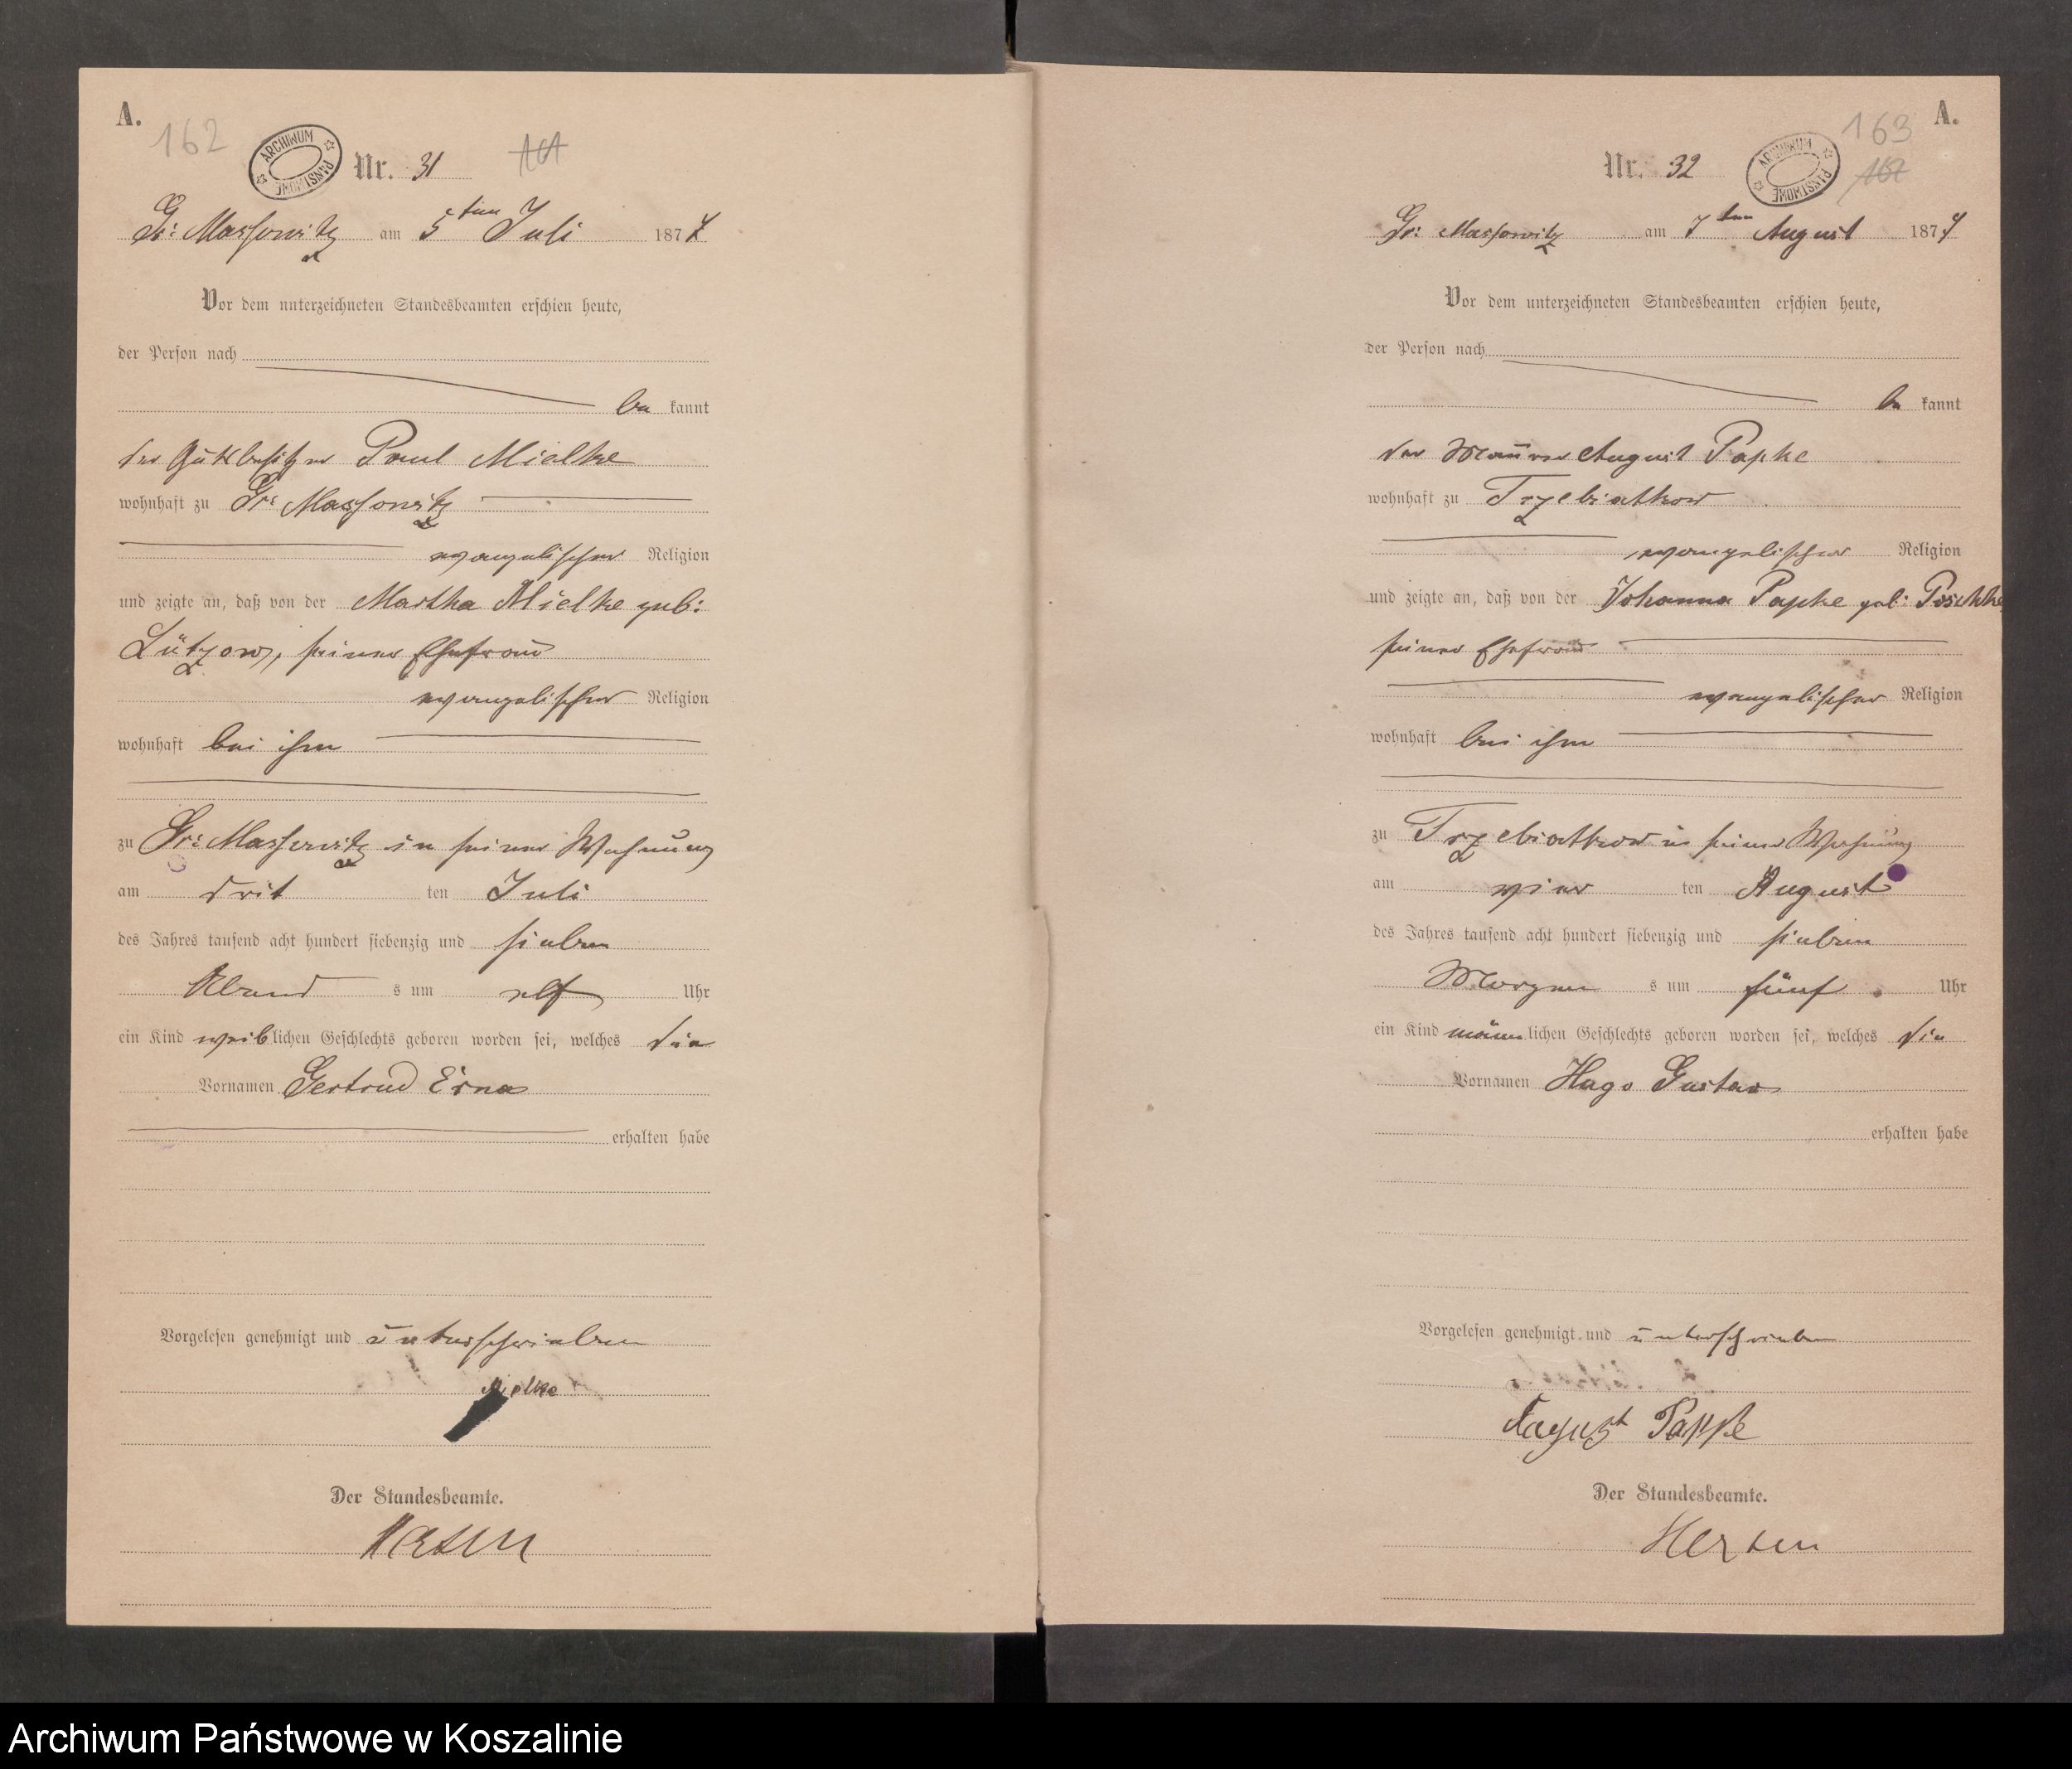 A.
162
ARCHIWUM PAŃSTWOWE
Nr. 31
Gr: Massowitz am 5ten Juli 1877
Vor dem unterzeichneten Standesbeamten erschien heute,
der Person nach
be kannt
der Gutsbesitzer Paul Mielke
wohnhaft zu Gr: Massowitz
evangelischer Religion
und zeigte an, daß von der Martha Mielke geb:
Lützow, seiner Ehefrau
evangelischer Religion
wohnhaft bei ihm
zu Gr: Massowitz in seiner Wohnung
am drit ten Juli
des Jahres tausend acht hundert siebenzig und sieben
Abend s um elf Uhr
ein Kind weiblichen Geschlechts geboren worden sei, welches die
Vornamen Gertrud Erna
erhalten habe
Vorgelesen genehmigt und unterschrieben
Mielke
Der Standesbeamte.
A.
163
ARCHIWUM PAŃSTWOWE
Nr. 32
Gr: Massowitz am 7ten August 1877
Vor dem unterzeichneten Standesbeamten erschien heute,
der Person nach
be kannt
der Maurer August Papke
wohnhaft zu Trzebiatkow
evangelischer Religion
und zeigte an, daß von der Johanna Papke geb: Poschke
seiner Ehefrau
evangelischer Religion
wohnhaft bei ihm
zu Trzebiatkow in seiner Wohnung
am vier ten August
des Jahres tausend acht hundert siebenzig und sieben
Morgen s um fünf Uhr
ein Kind männlichen Geschlechts geboren worden sei, welches die
Vornamen Hugo Gustav
erhalten habe
Vorgelesen genehmigt und unterschrieben
August Papke
Der Standesbeamte.
Archiwum Państwowe w Koszalinie